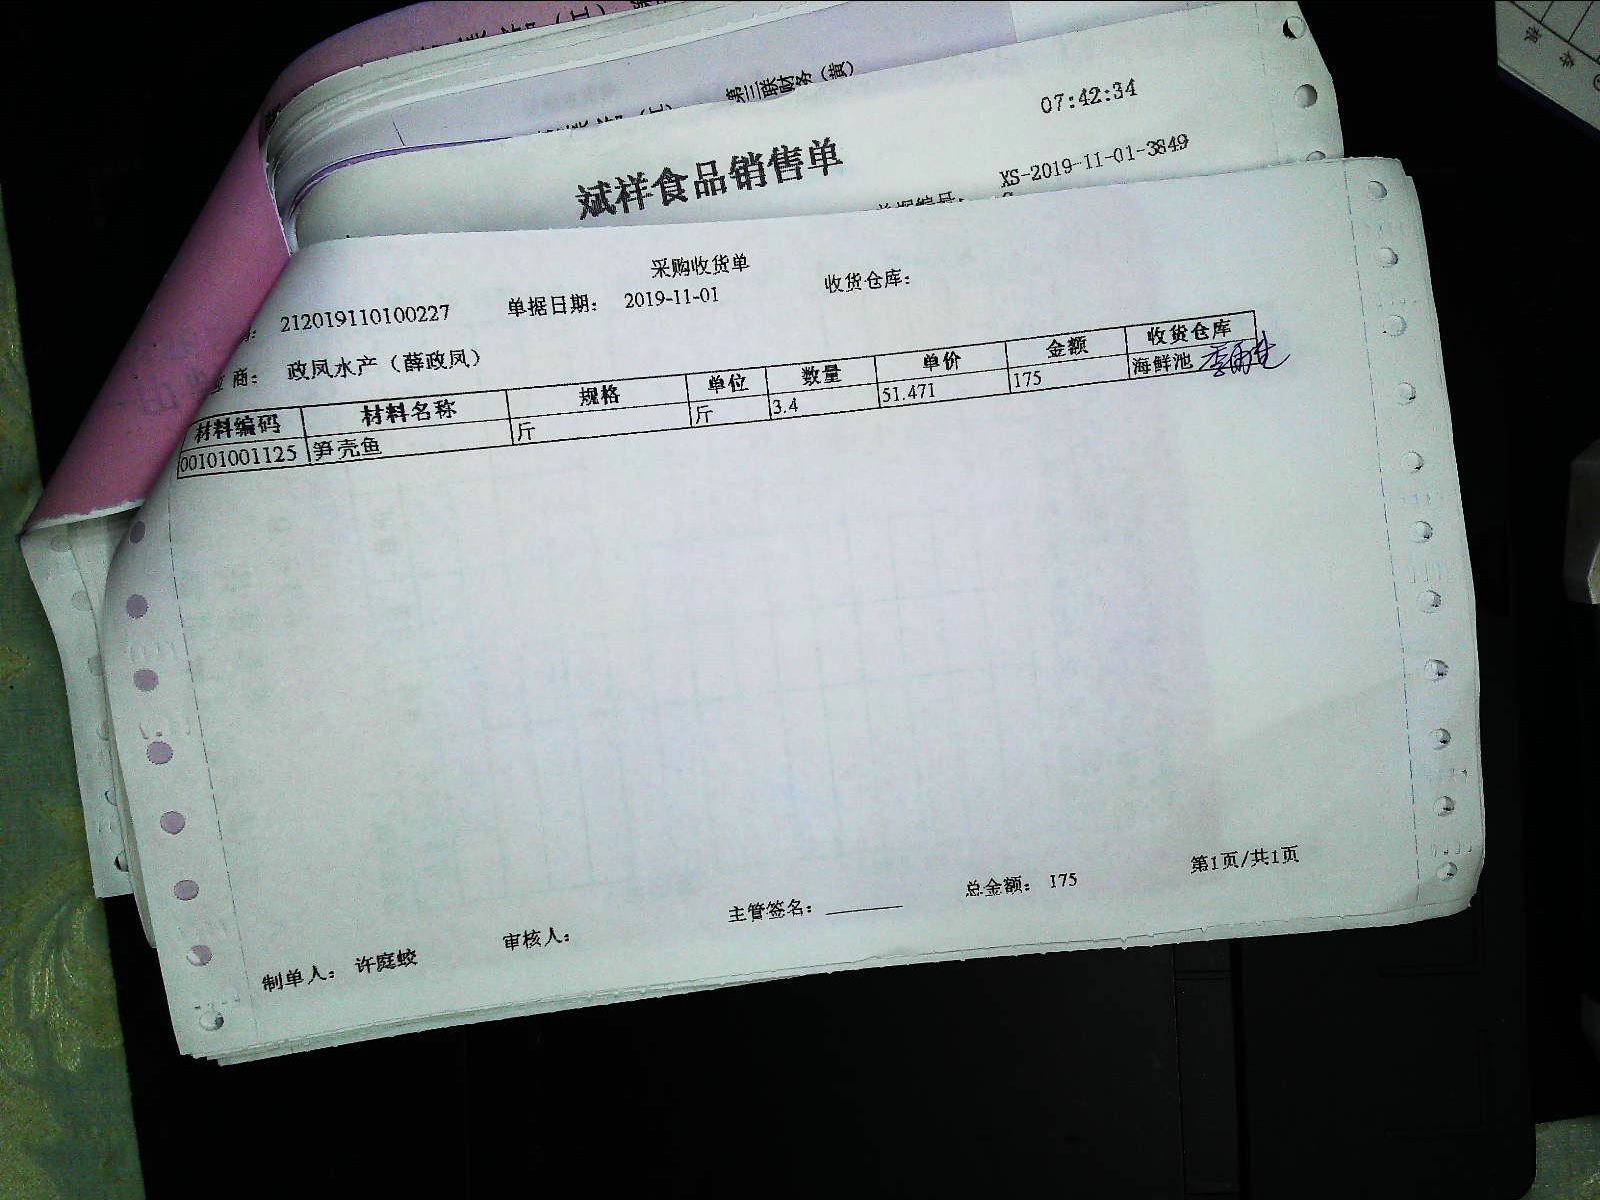 第三联财务（黄）
07:42:34
斌祥食品销售单
XS-2019-11-01-3849
采购收货单
212019110100227 单据日期： 2019-11-01 收货仓库：
商： 政凤水产（薛政凤）
材料编码 材料名称 规格 单位 数量 单价 金额 收货仓库
00101001125 笋壳鱼 斤 斤 3.4 51.471 175 海鲜池
制单人： 许庭蛟 审核人： 主管签名： 总金额： 175 第1页/共1页